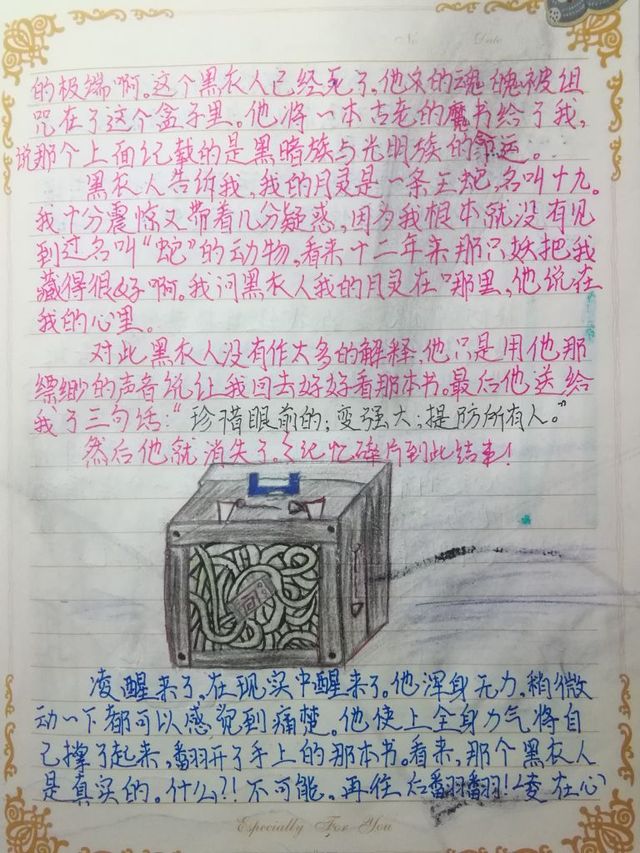 No. Date
的极端啊。这个黑衣人已经死了,他的魂魄被诅
咒在了这个盒子里。他将一本古老的魔书给了我,
说那个上面记载的是黑暗族与光明族的命运。
黑衣人告诉我,我的月灵是一条王蛇,名叫十九。
我十分震惊又带着几分疑惑,因为我根本就没有见
到过名叫“蛇”的动物,看来十二年来那只妖把我
藏得很好啊。我问黑衣人我的月灵在哪里,他说在
我的心里。
对此黑衣人没有作太多的解释,他只是用他那
缥缈的声音说让我回去好好看那本书。最后他送给
我了三句话:“珍惜眼前的;变强大;提防所有人。”
然后他就消失了。记忆碎片到此结束!
凌醒来了,在现实中醒来了。他浑身无力,稍微
动一下都可以感觉到痛楚。他使上全身力气将自
己撑了起来,翻开了手上的那本书。看来,那个黑衣人
是真实的。什么?!不可能。再往后翻翻!凌在心
Especially For You